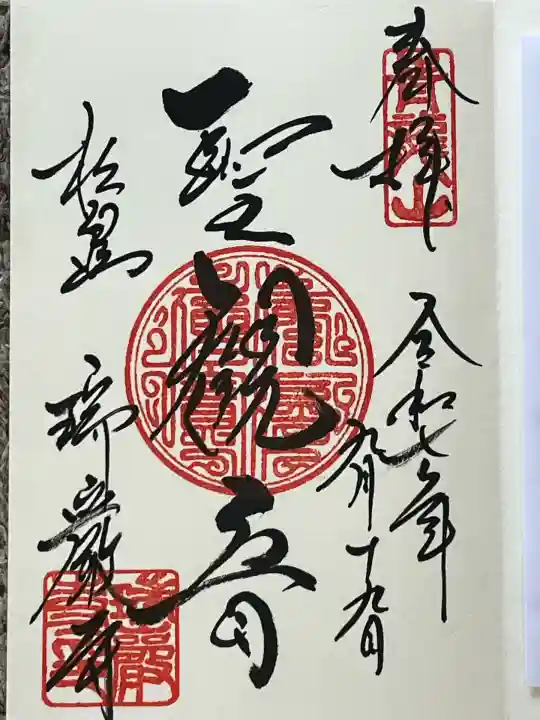 奉拝
令和七年
九月十九日
聖観音
松島
瑞巌寺